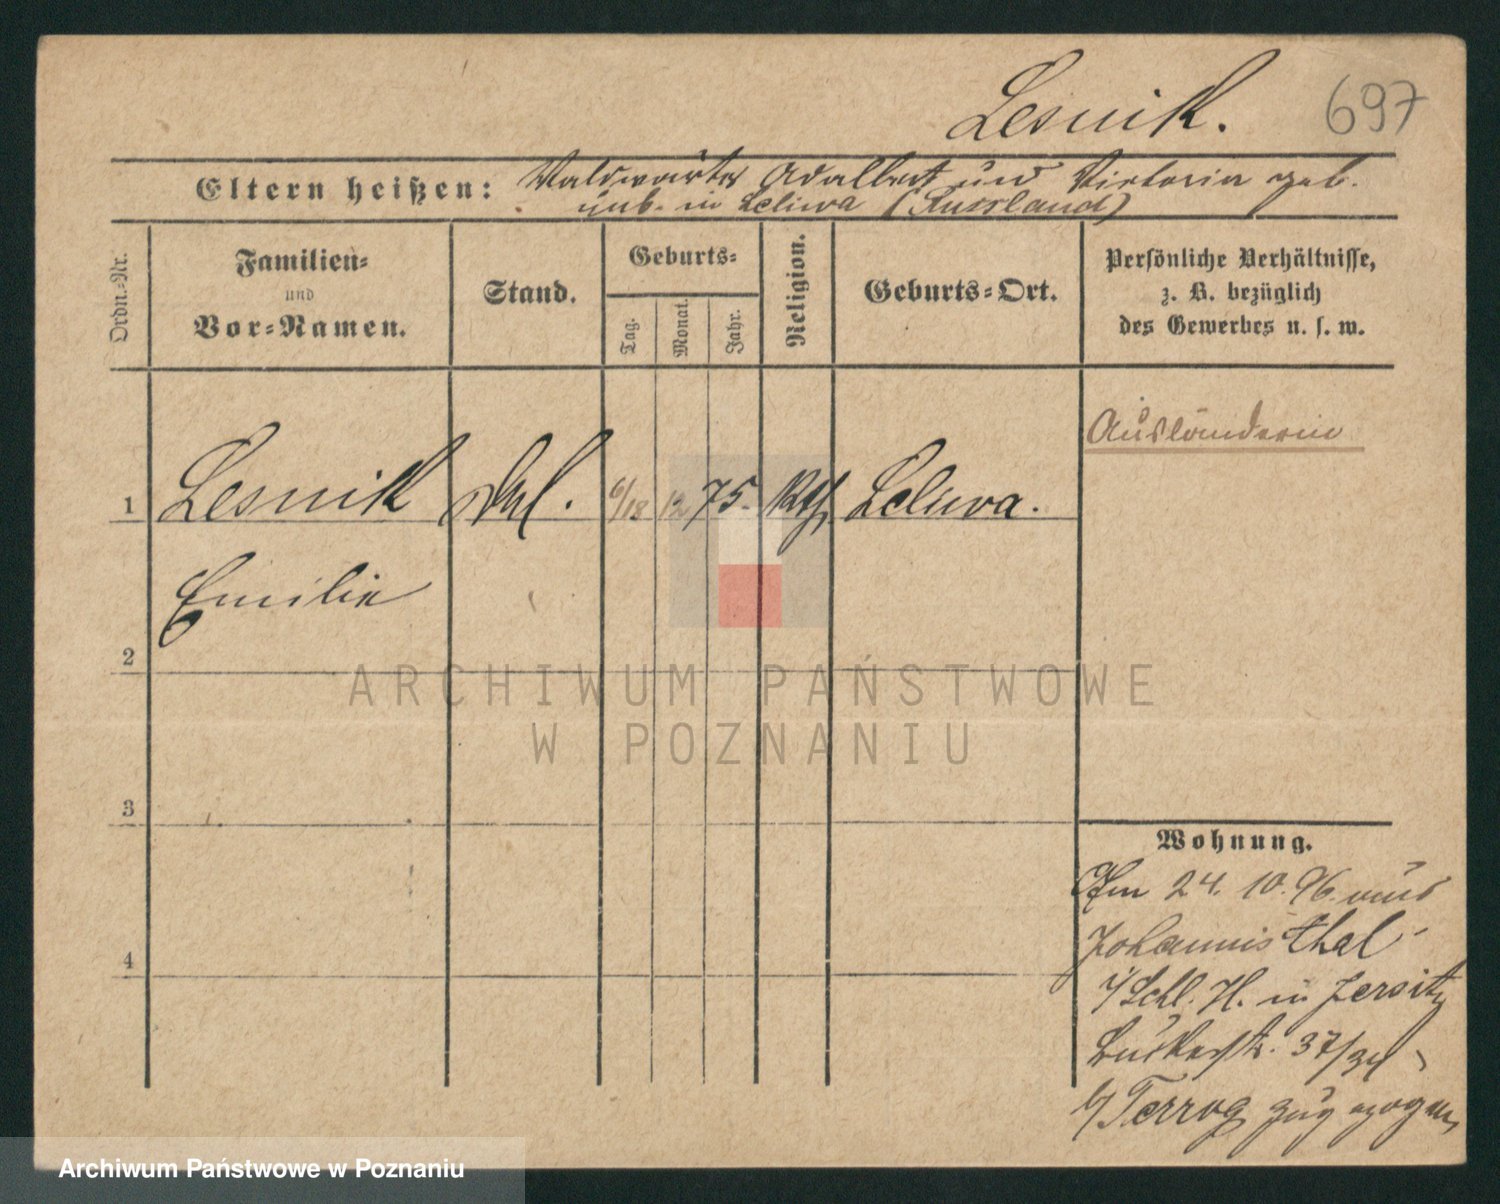 Lesnik.
697
Eltern heißen: Waldwärter Adalbert und Victoria geb.
unb. in Leliwa (Russland)
Ordn.-Nr.
Familien-
und
Vor-Namen.
Stand.
Geburts-
Tag.
Monat.
Jahr.
Religion.
Geburts-Ort.
Persönliche Verhältnisse,
z. B. bezüglich
des Gewerbes u. s. w.
Ausländerin
1 Lesnik 6/18 12 75. Kth. Leliwa.
Emilie
2
3
4
ARCHIWUM PAŃSTWOWE
W POZNANIU
Wohnung.
Am 24. 10. 96. aus
Johannisthal
Schl. H. in Jersitz
37/34
b/ zugezogen
Archiwum Państwowe w Poznaniu